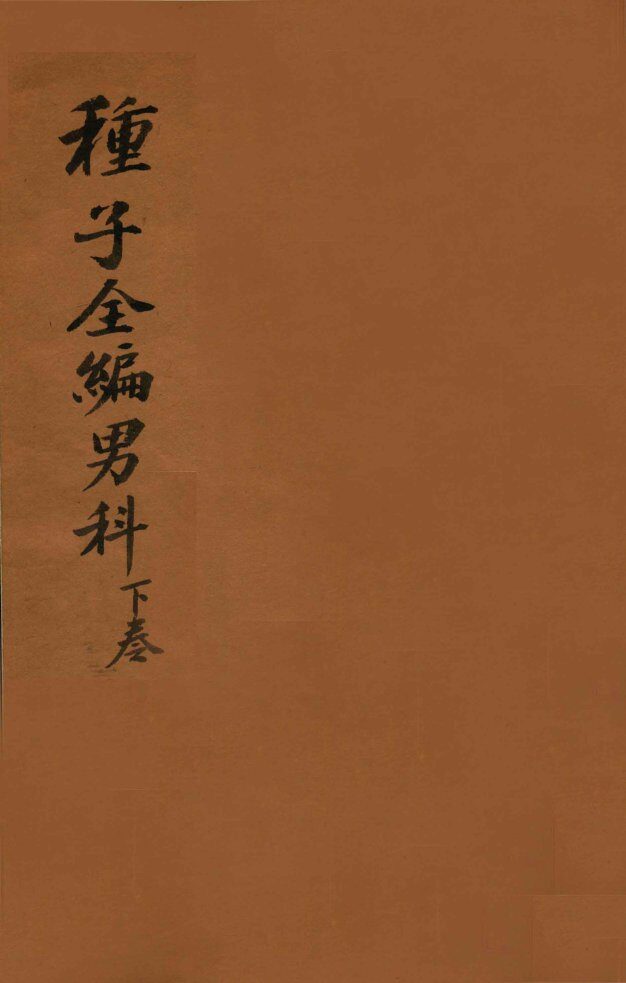 種子全編男科下卷